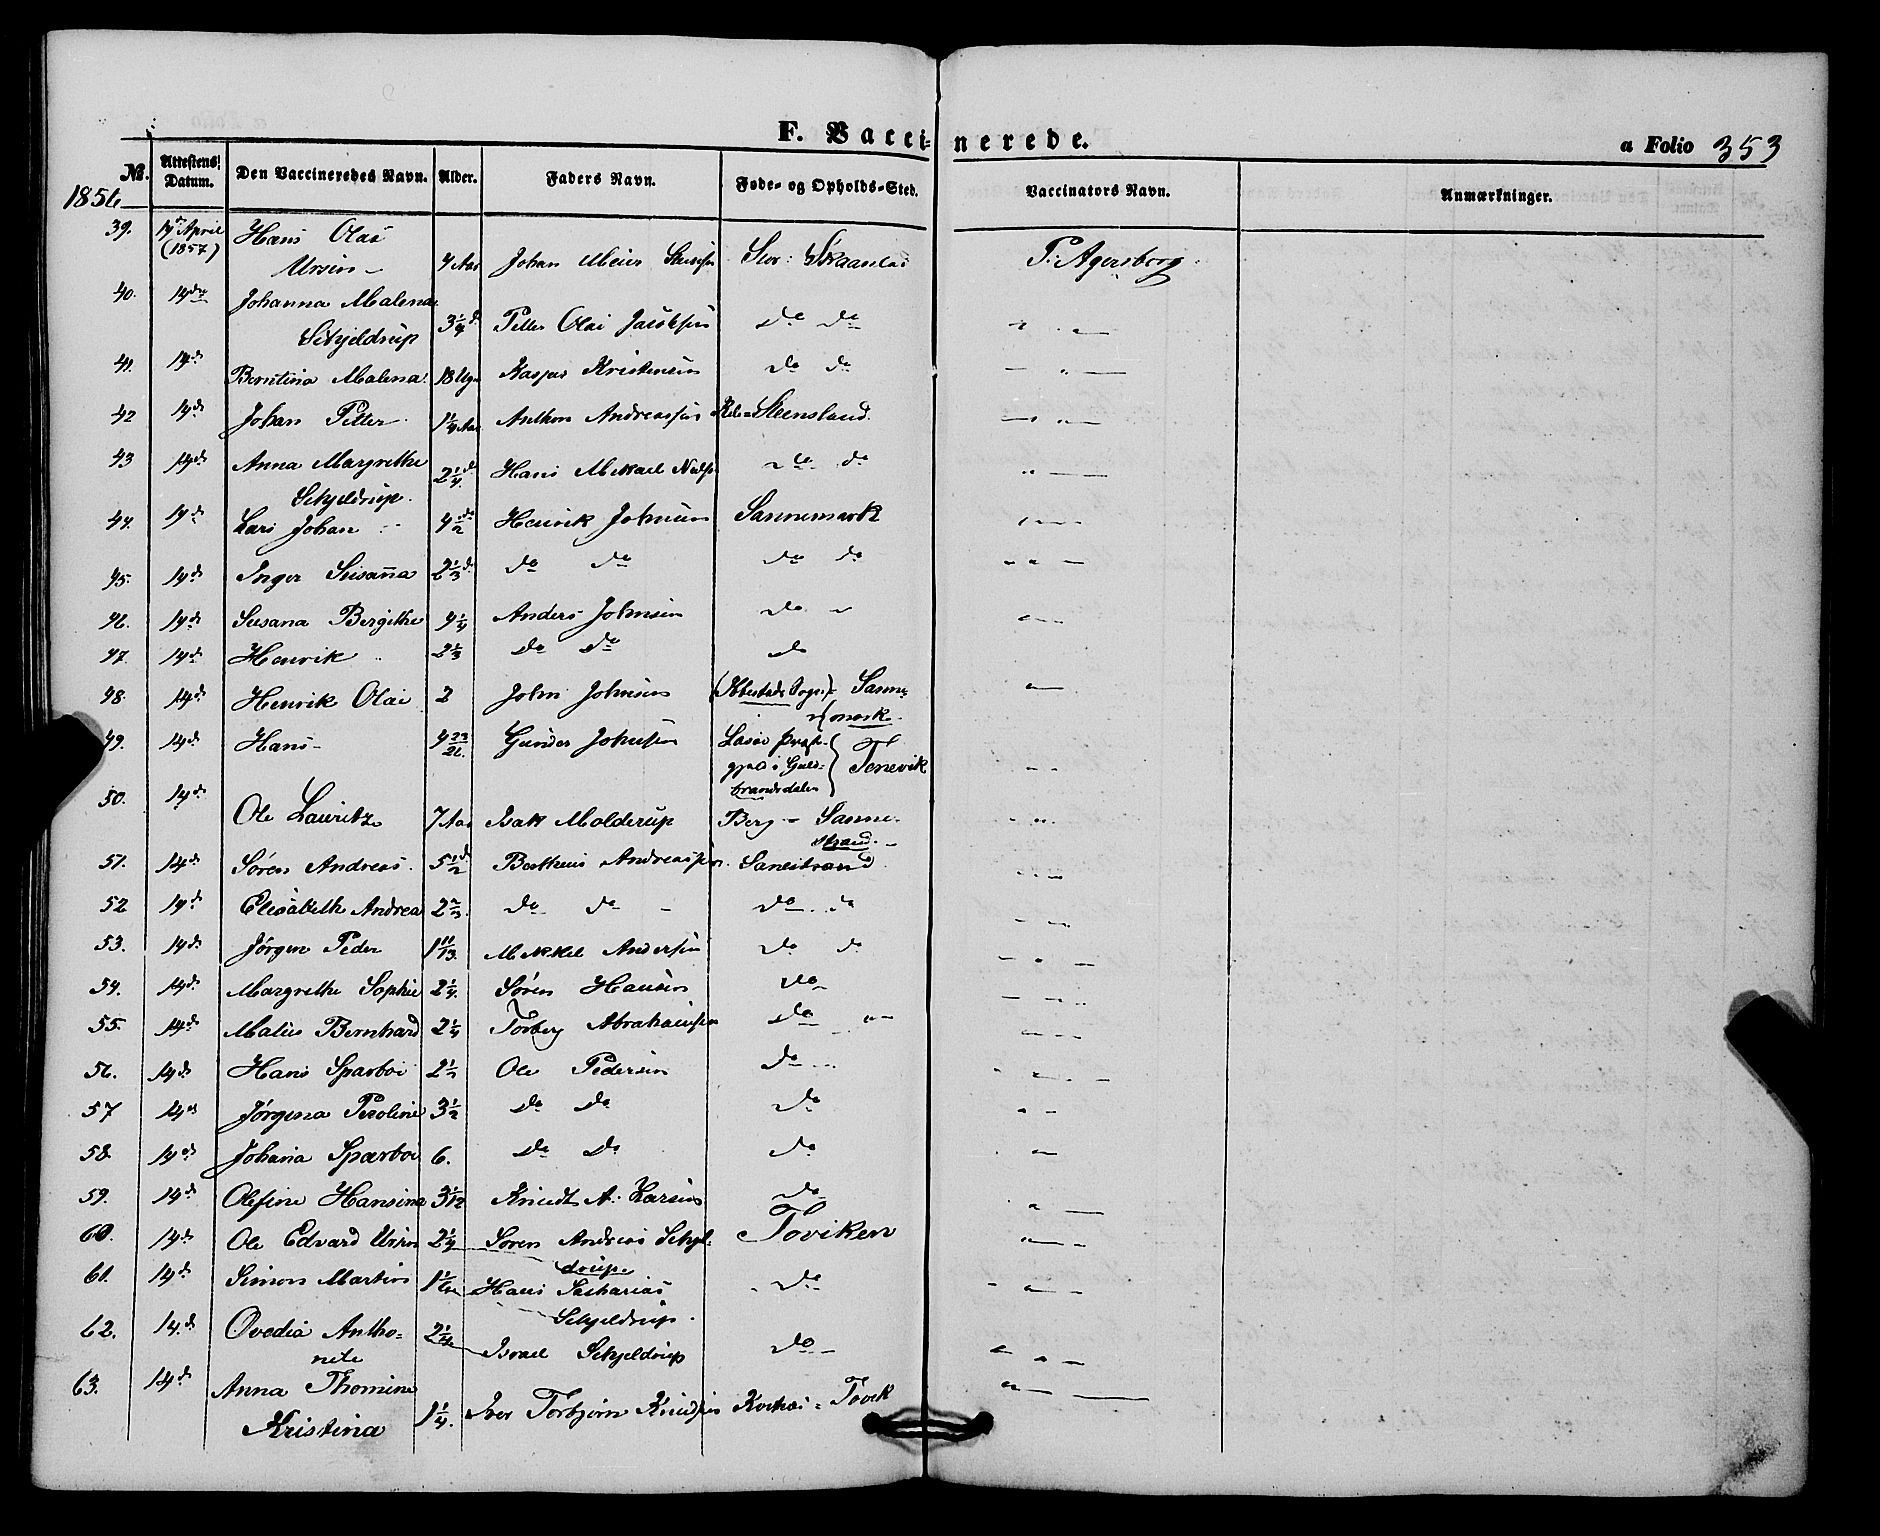 F. Vaccinerede.
a Folio 353
No. Attestens Datum. Den Vaccineredes Navn. Alder. Faders Navn. Føde- og Opholds-Sted. Vaccinators Navn. Anmærkninger.
1856
39. 14de April (1857) Hans Olai
Ursin 4 Aar Johan Meier Stor: P. Agersborg.
40. 14de Johanna Malena
Schjeldrup 3 1/4 d. Petter Olai Jacobsen do do
41. 14d. Berntina Malena 18 Kaspar Kristensen do do
42 14d. Johan Petter 1 1/4 Aar Anthon Andreassen Steensland.
43 14d. Anna Margrethe
Schjeldrup. 2 1/4 d. Hans Mikael do do
44. 14d. Lars Johan 4 1/2 do Henrik Johnsen Sannemark
45. 14d. Inger Susanna 2 1/3 d. do do do do
46. 14d. Susana Bergithe 4 1/4 Anders Johnsen do
47. 14d. Henrik 2 1/3 do do do
48. 14d. Henrik Olai 2 John Johnsen (Ibestads Sogn) Sanne-
mark.
49. 14d. Hans 4 23/26 Gunder Johnsen Præste-
gjeld i Guld-
brandsdalen } Tenevik
50. 14d. Ole Lauritz 7 Aar Isak Molderup Berg - Sanne-
strand.
51. 14d. Søren Andreas. 5 1/2 d. Bertheus Andreassen. Sanestrand
52 14d. Elisabeth Andrea 2 2/3 do do do do
53. 14d. Jørgen Peder 1 11/13 Mekkel Andersen do do
54. 14d. Margrethe Sophie 2 1/4. Søren Hansen do
55. 14d. Malius Bernhard 2 1/4 Torberg Abrahamsen do
56. 14d. Hans Sparboi 2 1/2 Ole Pedersen do
57 14d. Jørgina Peroline 3 1/2 do do do
58. 14d. Johana Sparboi 6. do do do
59. 14d. Olefine Hansina 3 1/12 Knudt A. Larsen do
60. 14d. Ole Edvard Ursin 2 1/4 Søren Andreas Schjel-
drup. Toviken
61. 14d. Simon Martin Hans Sacharias
Schjeldrup. do
62. 14d. Ovedia Antho-
nete 2 1/4 Israel Schjeldrup do
63. 14d. Anna Thomine
Kristina 1 1/4. Iver Torbjørn Knudsen Tovik